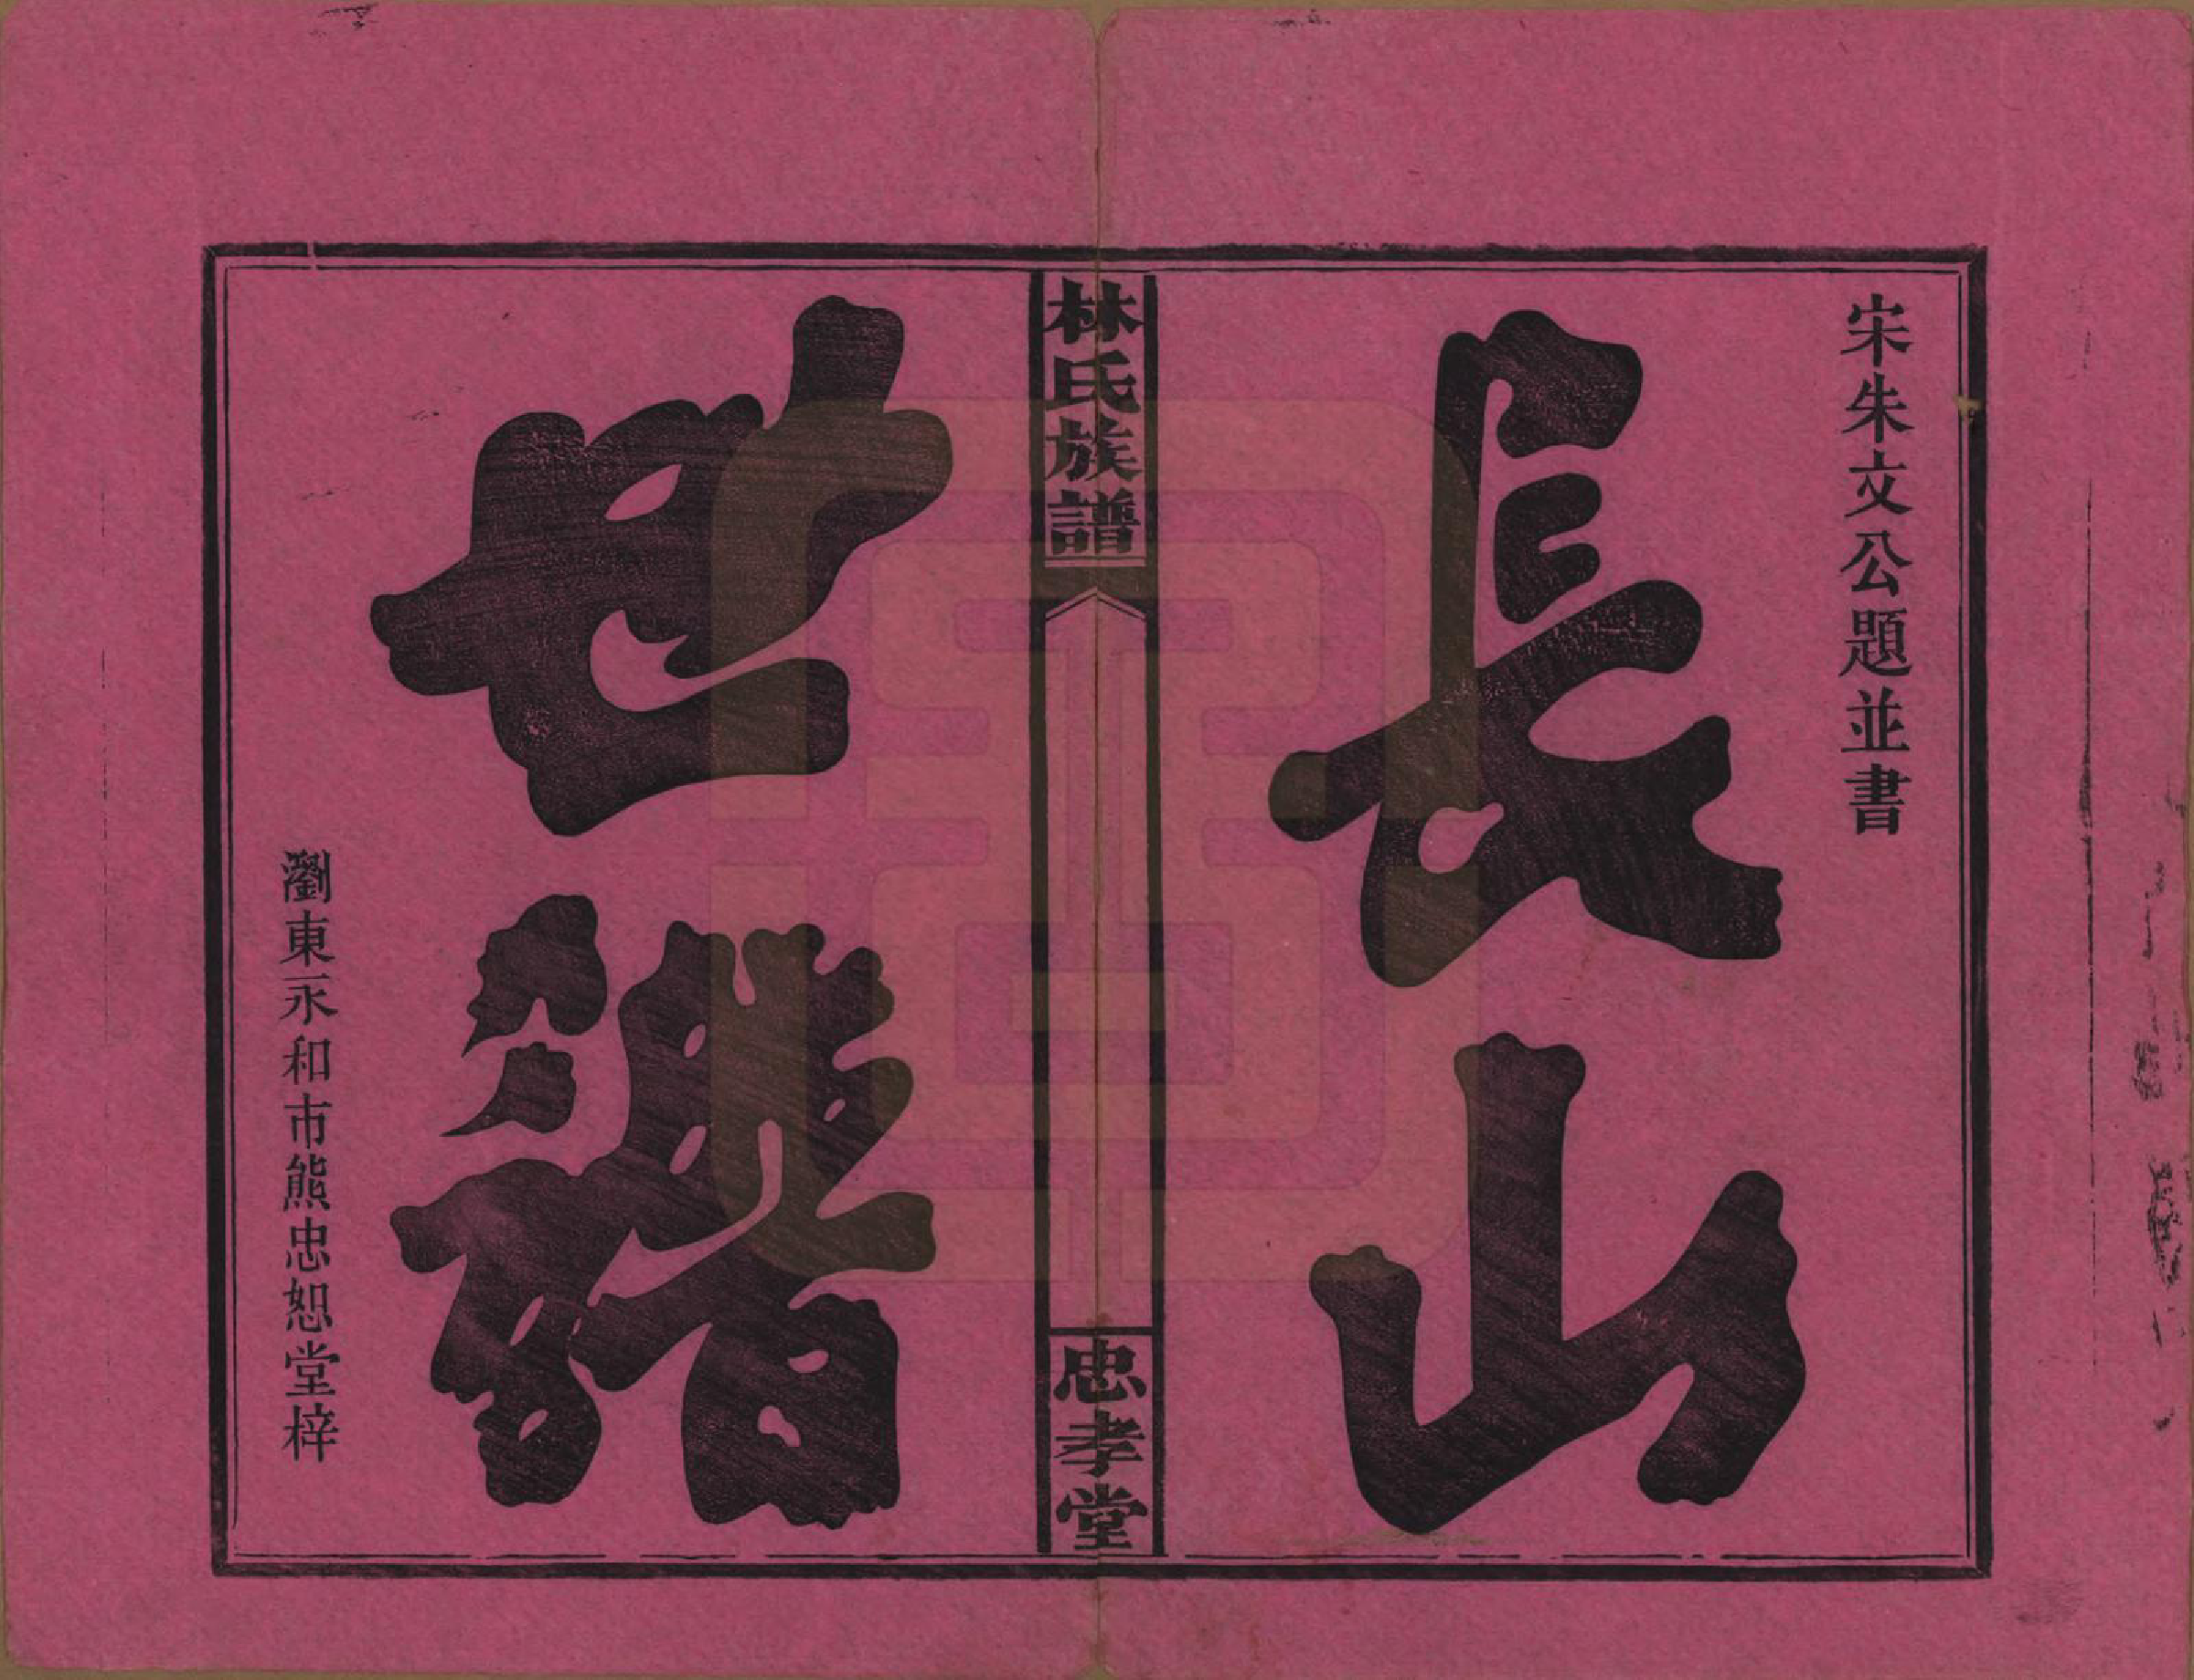 宋朱文公題並書
長山
林氏族譜
忠孝堂
世譜
瀏東永和市熊忠恕堂梓